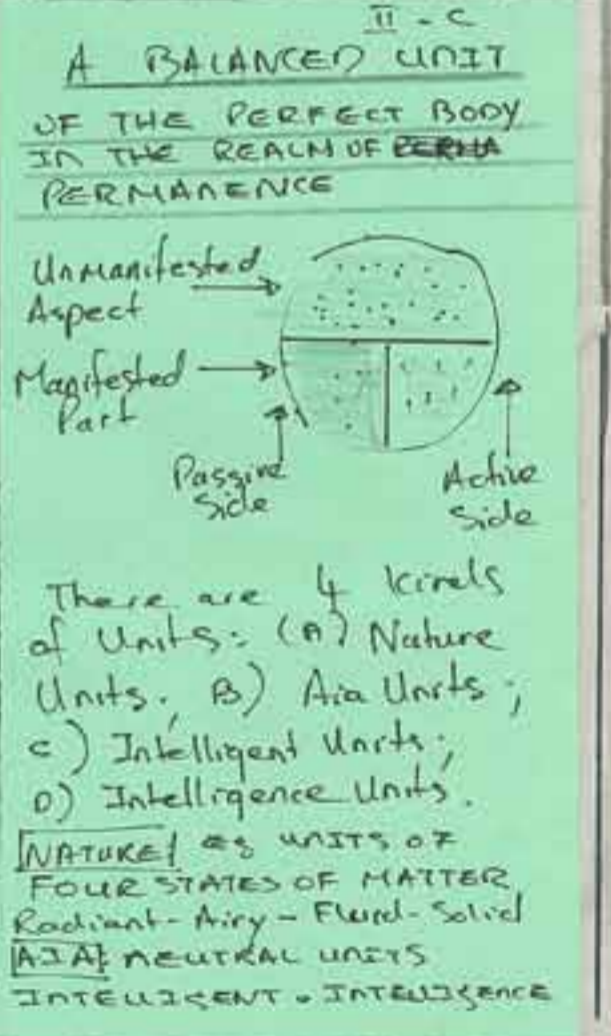 II - C
A BALANCED UNIT
OF THE PERFECT BODY
IN THE REALM OF PERMA
PERMANENCE
Unmanifested
Aspect
Manifested
Part
Passive
Side
Active
Side
There are 4 kinds
of Units: (A) Nature
Units; B) Aia Units;
C) Intelligent Units;
D) Intelligence Units.
NATURE as UNITS OF
FOUR STATES OF MATTER
Radiant - Airy - Fluid - Solid
AIA: NEUTRAL UNITS
INTELLIGENT . INTELLIGENCE